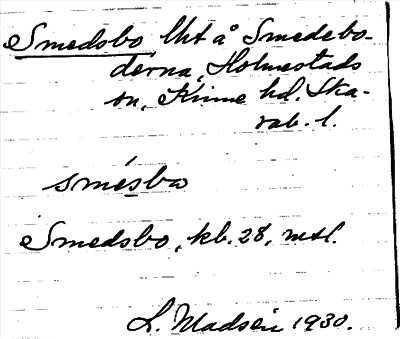 Smedsbo, lht å Smedebo-
derna, Holmestads
sn, Kinne hd. Ska-
rab. l.
smésbω
Smedsbo, kb. 28, mtl.
L. Madsén 1930.